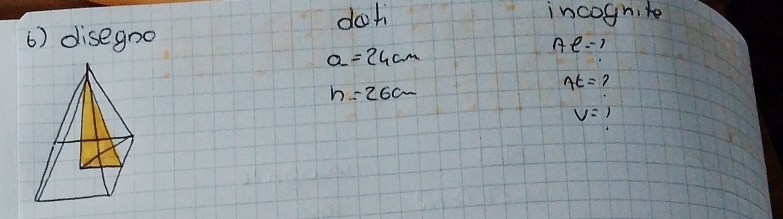 6) disegno
dati
incognite
a = 24cm
Al = ?
h = 26cm
At = ?
V = ?